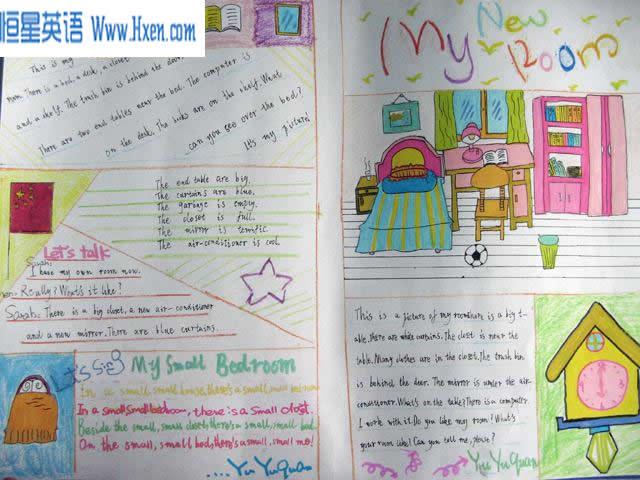 恒星英语 Www.Hxen.com
This is my
room. There is a bed, a desk, a closet
and a shelf. The trash bin is behind the door.
There are two end tables near the bed. The computer is
on the desk. The books are on the shelf. What
can you see over the bed?
It's my picture
The end table are big.
The curtains are blue.
The garbage is empty.
The closet is full.
The mirror is terrific.
The air-conditioner is cool
Let's talk
Sarah:
I have my own room now.
Really? What's it like?
Sarah: There is a big closet, a new air-conditioner
and a new mirror. There are blue curtains.
Let's sing My Small Bedroom
In a small, small house, there's a small, small bedroom
In a small small bedroom, there is a small closet.
Beside the small, small closet, there's a small, small bed
On the small, small bed, there's a small, small me!
.... Yu Yu Quan
My New Room
This is a picture of my room. there is a big t-
able, there are white curtains. The closet is near the
table. Many clothes are in the closet. The trash bin
is behind the door. The mirror is under the air-
conditioner. What's on the table? There is a computer.
I work with it. Do you like my room? What's
your room like? Can you tell me, please?
Yu Yu Quan